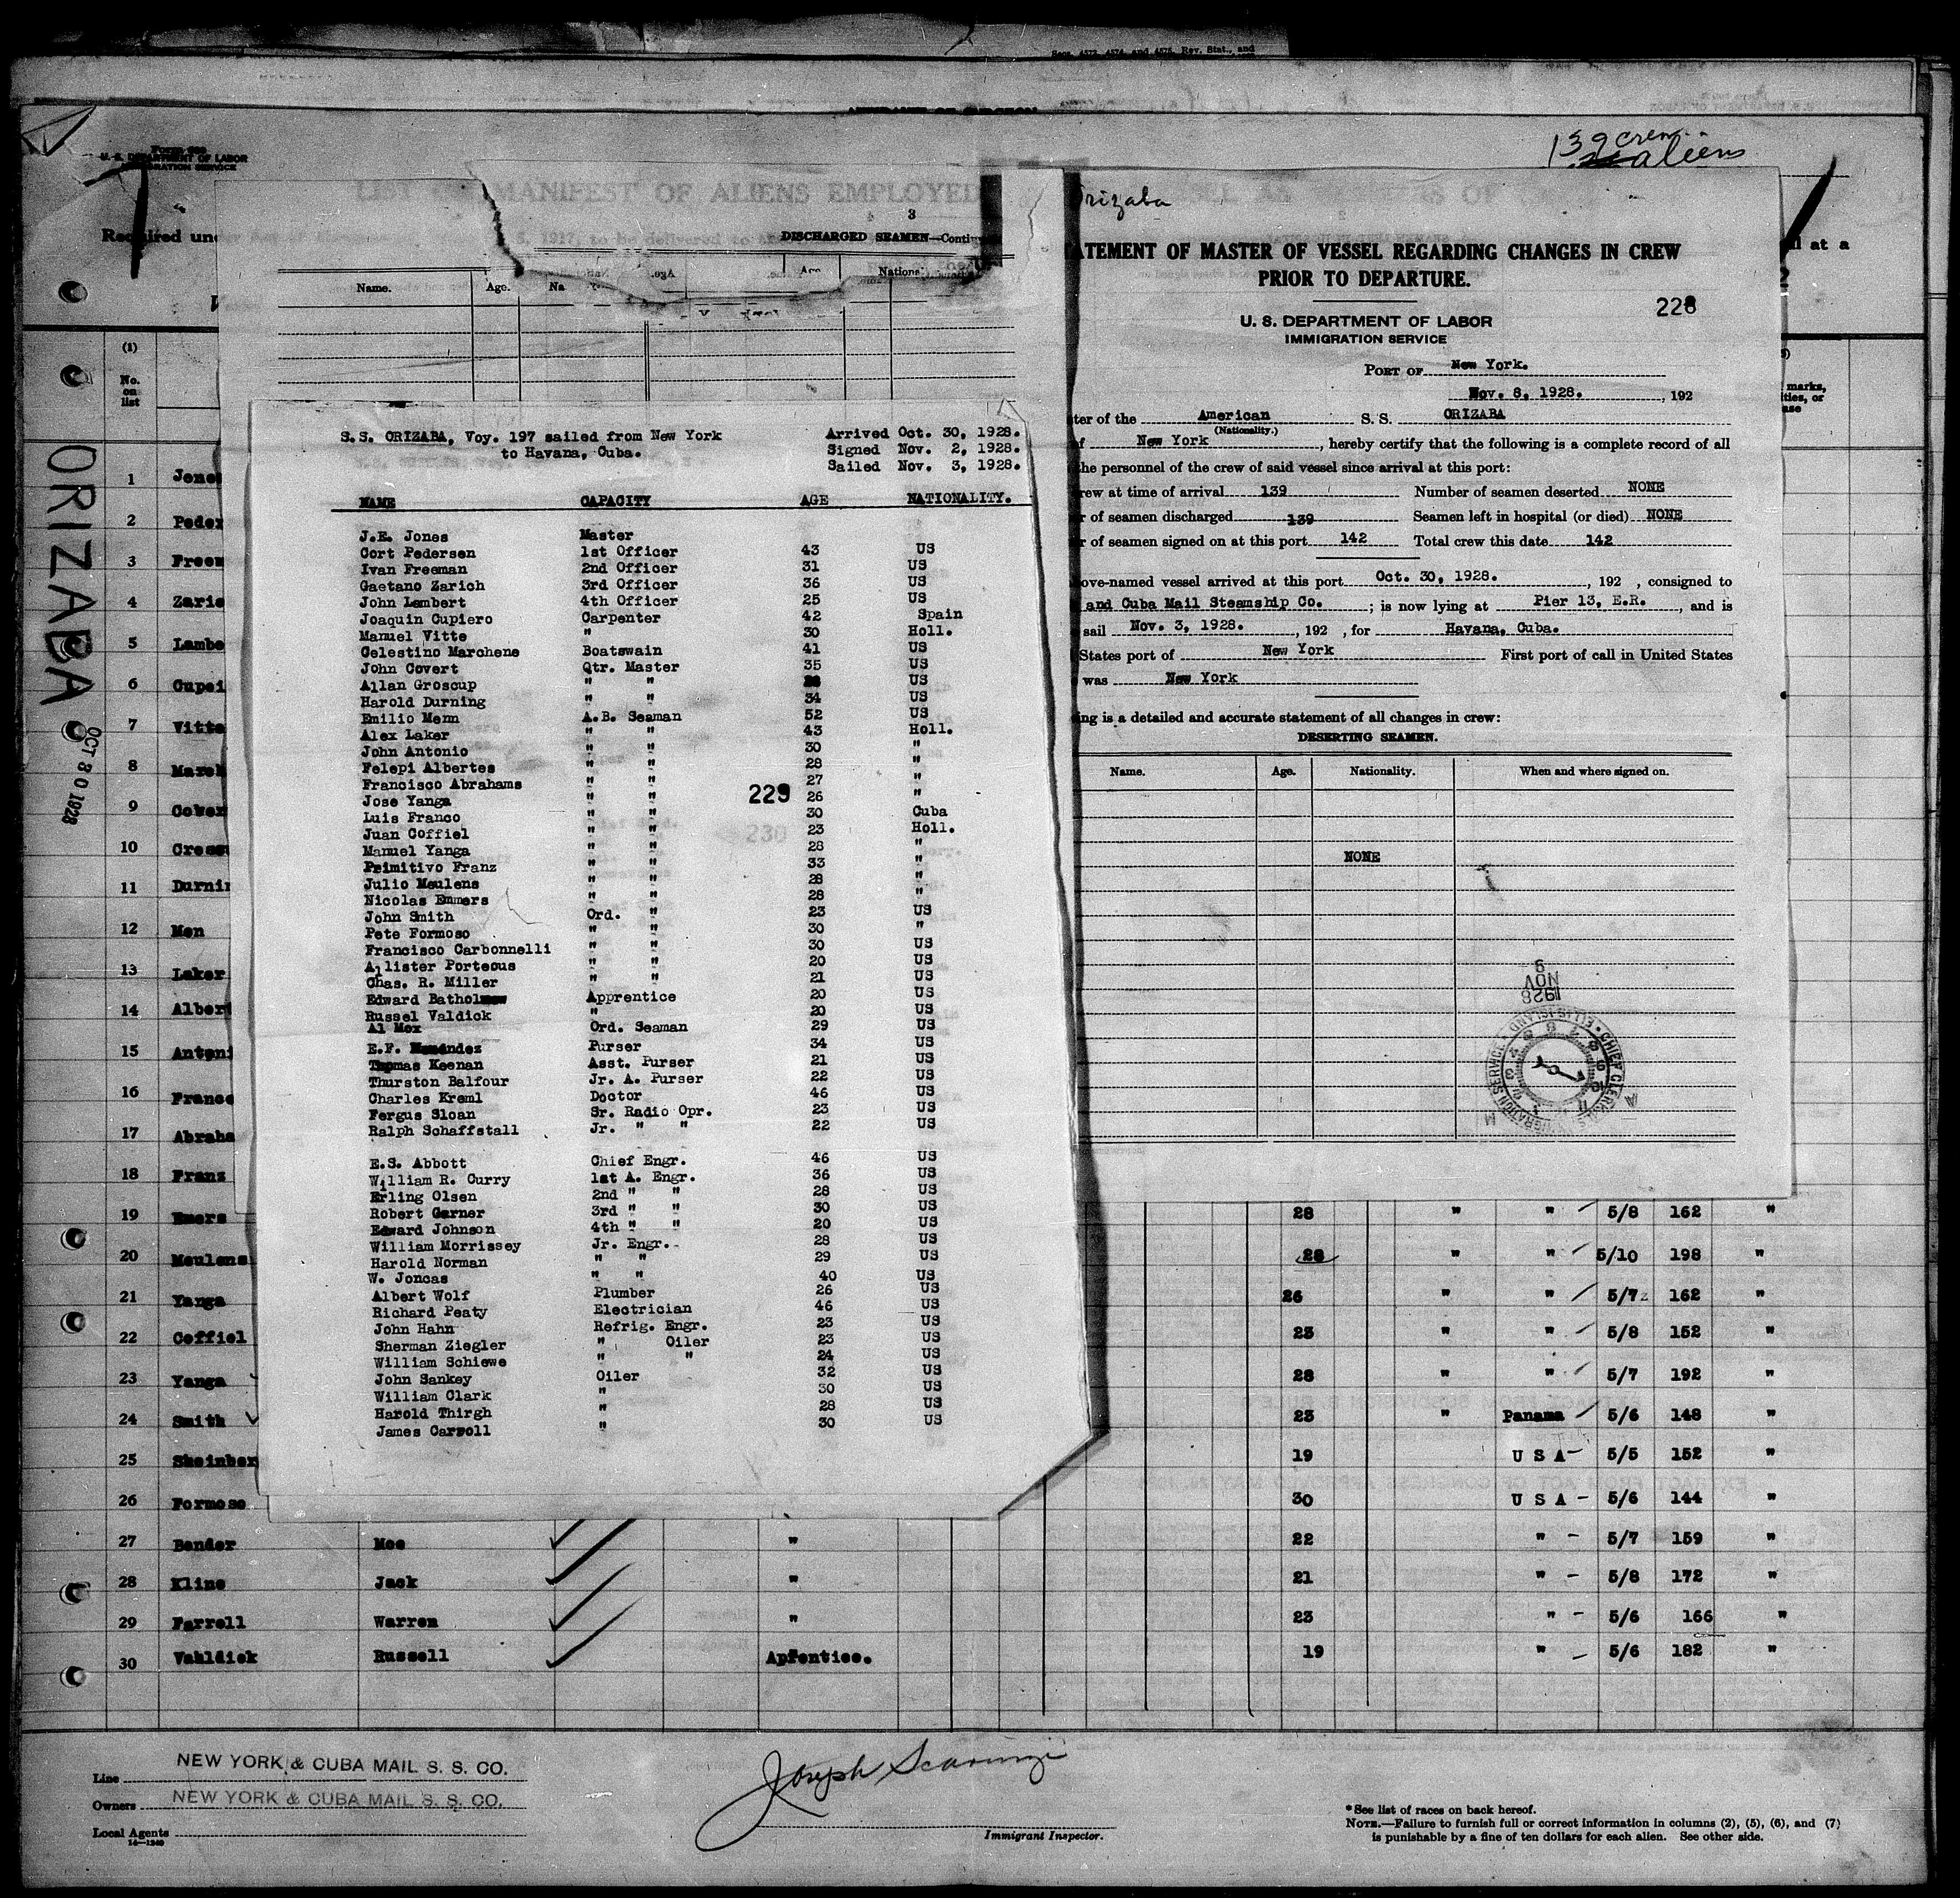 Secs. 4573, 4574, and 4575, Rev. Stat., and
139 crew
aliens
Form 689
U. S. DEPARTMENT OF LABOR
IMMIGRATION SERVICE
LIST OR MANIFEST OF ALIENS EMPLOYED
Required under
ORIZABA
OCT 30 1928
(1)
No.
on
list
1 Jones
2 Peder
3 Freem
4 Zaric
5 Lambe
6 Cupei
7 Vitte
8 March
9 Cover
10 Grosc
11 Durnin
12 Men
13 Laker
14 Albert
15 Antoni
16 Franco
17 Abraha
18 Franz
19 Emers 28 " " 5/8 162 "
20 Meulens 28 " " 5/10 198 "
21 Yanga 26 " " 5/7 162 "
22 Coffiel 23 " " 5/8 152 "
23 Yanga 28 " " 5/7 192 "
24 Smith 23 " Panama 5/6 148 "
25 Sheinber 19 U S A 5/5 152 "
26 Formoso 30 U S A 5/6 144 "
27 Bender Moe " 22 " 5/7 159 "
28 Kline Jack " 21 " 5/8 172 "
29 Farrell Warren " 23 " 5/6 166 "
30 Vahldick Russell Apfentice. 19 " 5/6 182 "
3
DISCHARGED SEAMEN—Contin
Name. Age. Na
S.S. ORIZABA, Voy. 197 sailed from New York
to Havana, Cuba.
Arrived Oct. 30, 1928.
Signed Nov. 2, 1928.
Sailed Nov. 3, 1928.
NAME CAPACITY AGE NATIONALITY.
J.E. Jones Master
Cort Pedersen 1st Officer 43 US
Ivan Freeman 2nd Officer 31 US
Gaetano Zarich 3rd Officer 36 US
John Lambert 4th Officer 25 US
Joaquin Cupiero Carpenter 42 Spain
Manuel Vitte " 30 Holl.
Celestino Marchene Boatswain 41 US
John Covert Qtr. Master 35 US
Allan Groscup " " US
Harold Durning " " 34 US
Emilio Menn A.B. Seaman 52 US
Alex Laker " " 43 Holl.
John Antonio " " 30 "
Felepi Albertes " " 28 "
Francisco Abrahams " " 27 "
Jose Yanga " " 26 "
229
Luis Franco " " 30 Cuba
Juan Coffiel " " 23 Holl.
Manuel Yanga " " 28 "
Primitivo Franz " " 33 "
Julio Meulens " " 28 "
Nicolas Emmers " " 28 "
John Smith Ord. " 23 US
Pete Formoso " " 30 "
Francisco Carbonnelli " " 30 US
Allister Porteous " " 20 US
Chas. R. Miller " " 21 US
Edward Bathol Apprentice 20 US
Russel Valdick " 20 US
Al Mox Ord. Seaman 29 US
E.F. Menéndez Purser 34 US
Thomas Keenan Asst. Purser 21 US
Thurston Balfour Jr. A. Purser 22 US
Charles Kreml Doctor 46 US
Fergus Sloan Sr. Radio Opr. 23 US
Ralph Schaffstall Jr. " " 22 US
E.S. Abbott Chief Engr. 46 US
William R. Curry 1st A. Engr. 36 US
Erling Olsen 2nd " " 28 US
Robert Garner 3rd " " 30 US
Edward Johnson 4th " " 20 US
William Morrissey Jr. Engr. 28 US
Harold Norman " " 29 US
W. Joncas " " 40 US
Albert Wolf Plumber 26 US
Richard Peaty Electrician 46 US
John Hahn Refrig. Engr. 23 US
Sherman Ziegler " Oiler 23 US
William Schiewe " " 24 US
John Sankey Oiler 32 US
William Clark " 30 US
Harold Thirgh " 28 US
James Carroll " 30 US
rizaba
ATEMENT OF MASTER OF VESSEL REGARDING CHANGES IN CREW
PRIOR TO DEPARTURE.
228
U. S. DEPARTMENT OF LABOR
IMMIGRATION SERVICE
PORT OF New York.
Nov. 8, 1928. , 192
ter of the American S. S. ORIZABA
(Nationality.)
of New York , hereby certify that the following is a complete record of all
he personnel of the crew of said vessel since arrival at this port:
rew at time of arrival 139 Number of seamen deserted NONE
r of seamen discharged 139 Seamen left in hospital (or died) NONE
r of seamen signed on at this port 142 Total crew this date 142
ove-named vessel arrived at this port Oct. 30, 1928. , 192 , consigned to
and Cuba Mail Steamship Co. ; is now lying at Pier 13, E.R. , and is
sail Nov. 3, 1928. , 192 , for Havana, Cuba.
States port of New York First port of call in United States
was New York
ing is a detailed and accurate statement of all changes in crew:
DESERTING SEAMEN.
Name. Age. Nationality. When and where signed on.
NONE
1928
NOV
9
CHIEF CLERK IMMIGRATION SERVICE ELLIS ISLAND
l at a
marks,
ities, or
ase
Line NEW YORK & CUBA MAIL S. S. CO.
Owners NEW YORK & CUBA MAIL S. S. CO.
Local Agents
14—1240
Joseph Scaringi
Immigrant Inspector.
*See list of races on back hereof.
NOTE.—Failure to furnish full or correct information in columns (2), (5), (6), and (7)
is punishable by a fine of ten dollars for each alien. See other side.